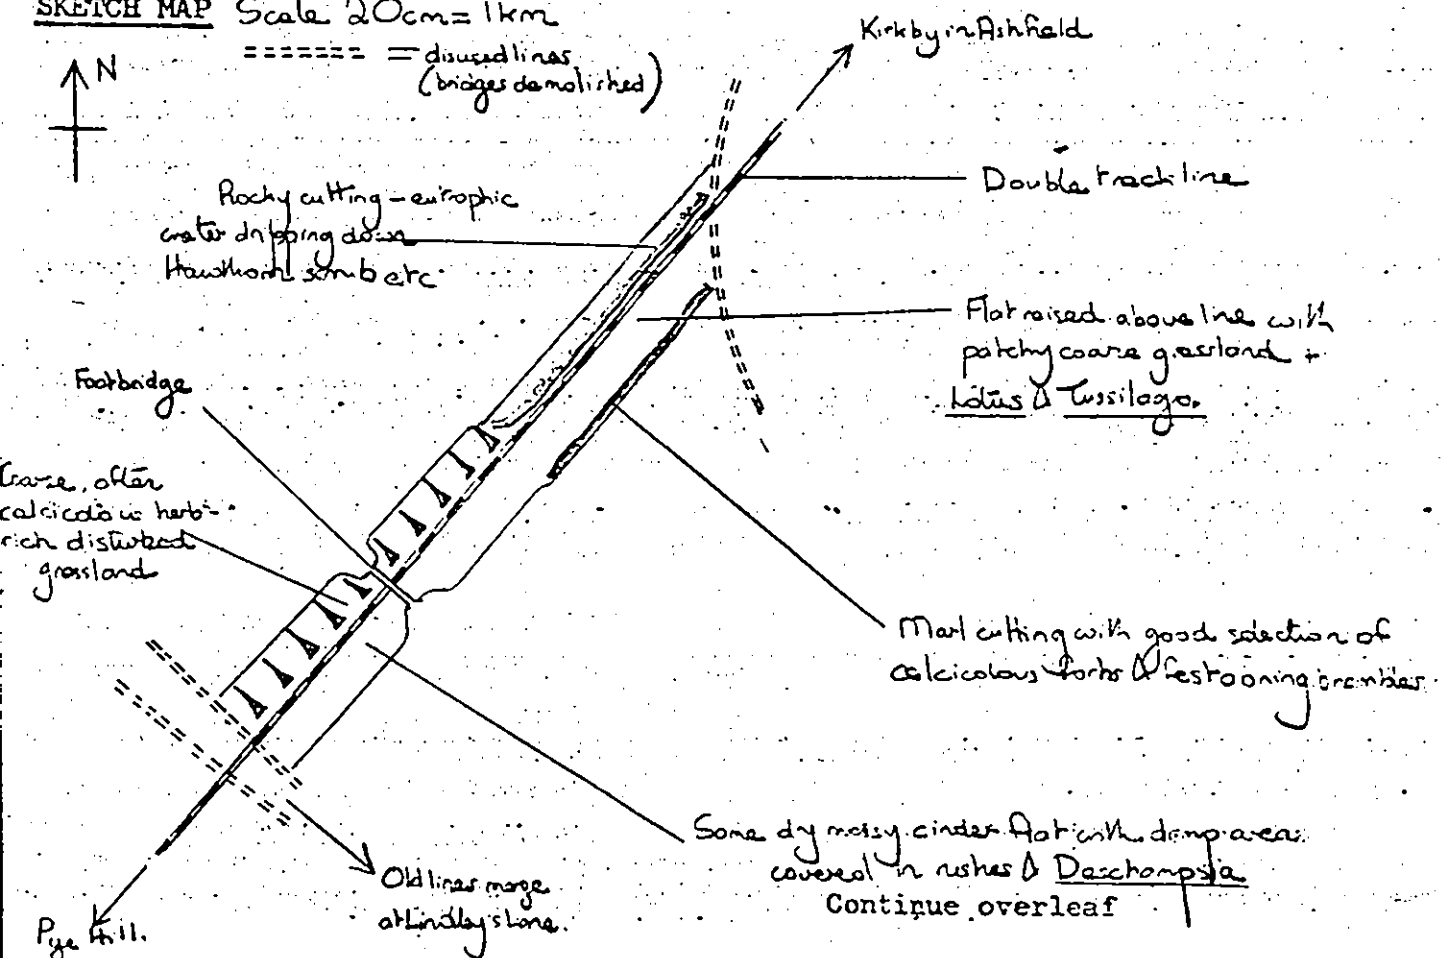 SKETCH MAP Scale 20cm = 1km
====== = disused lines
(bridges demolished)
N
Kirkby in Ashfield
Double track line
Rocky cutting - eutrophic
water dripping down
Hawthorn scrub etc.
Flat raised above line with
patchy coarse grassland +
Lotus & Tussilago.
Footbridge
Coarse, often
calcicolous herb-
rich disturbed
grassland
Marl cutting with good selection of
calcicolous forbs & festooning brambles.
Some dry mossy cinder flat with damp areas
covered in rushes & Deschampsia
Continue overleaf
Old lines merge
at Lindley's Lane.
Pye Hill.